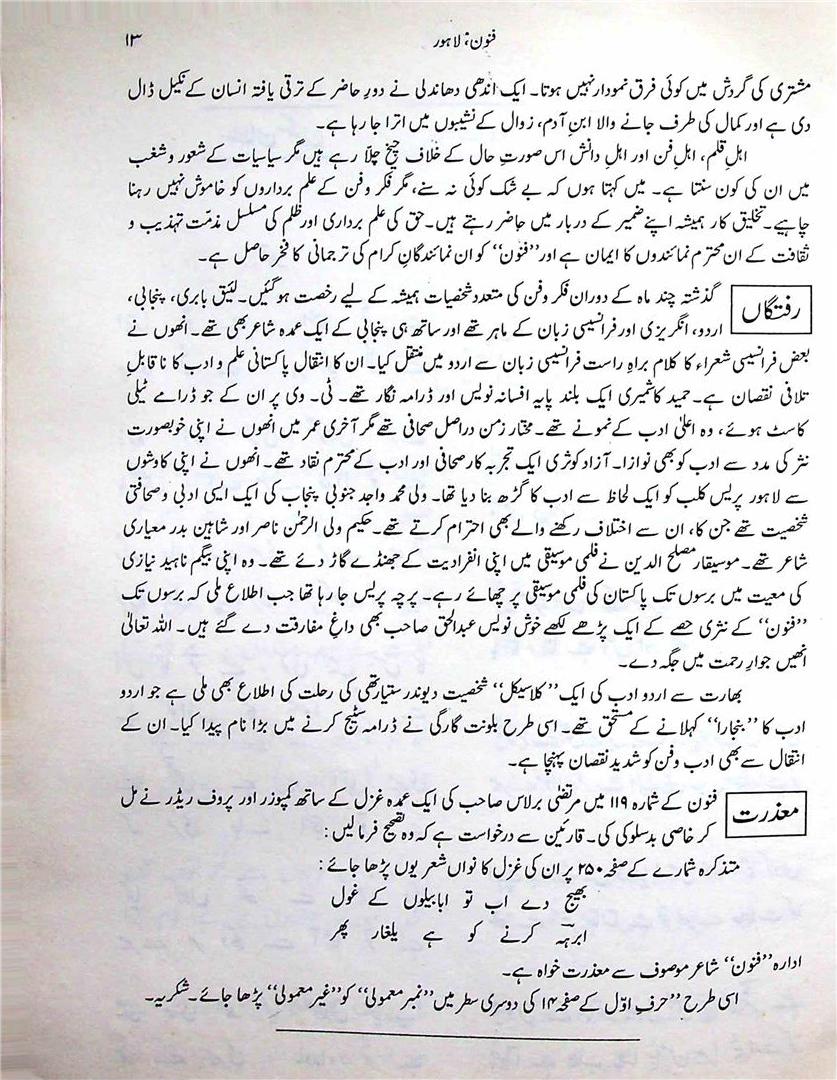 فنون، لاہور
۱۳
مشتری کی گردش میں کوئی فرق نمودار نہیں ہوتا۔ ایک اندھی دھاندلی نے دورِ حاضر کے ترقی یافتہ انسان کے نکیل ڈال
دی ہے اور کمال کی طرف جانے والا ابنِ آدم، زوال کے نشیبوں میں اترا جا رہا ہے۔
اہلِ قلم، اہلِ فن اور اہلِ دانش اس صورتِ حال کے خلاف چیخ چلّا رہے ہیں مگر سیاسیات کے شعور و شغب
میں ان کی کون سنتا ہے۔ میں کہتا ہوں کہ بے شک کوئی نہ سنے، مگر فکر و فن کے علم برداروں کو خاموش نہیں رہنا
چاہیے۔ تخلیق کار ہمیشہ اپنے ضمیر کے دربار میں حاضر رہتے ہیں۔ حق کی علم برداری اور ظلم کی مسلسل مذمّت تہذیب و
ثقافت کے ان محترم نمائندوں کا ایمان ہے اور ”فنون“ کو ان نمائندگانِ کرام کی ترجمانی کا فخر حاصل ہے۔
رفتگاں
گذشتہ چند ماہ کے دوران فکر و فن کی متعدد شخصیات ہمیشہ کے لیے رخصت ہو گئیں۔ لئیق بابری، پنجابی،
اردو، انگریزی اور فرانسیسی زبان کے ماہر تھے اور ساتھ ہی پنجابی کے ایک عمدہ شاعر بھی تھے۔ انھوں نے
بعض فرانسیسی شعراء کا کلام براہِ راست فرانسیسی زبان سے اردو میں منتقل کیا۔ ان کا انتقال پاکستانی علم و ادب کا ناقابلِ
تلافی نقصان ہے۔ حمید کاشمیری ایک بلند پایہ افسانہ نویس اور ڈرامہ نگار تھے۔ ٹی۔ وی پر ان کے جو ڈرامے ٹیلی
کاسٹ ہوئے، وہ اعلیٰ ادب کے نمونے تھے۔ مختار زمن دراصل صحافی تھے مگر آخری عمر میں انھوں نے اپنی خوبصورت
نثر کی مدد سے ادب کو بھی نوازا۔ آزاد کوثری ایک تجربہ کار صحافی اور ادب کے محترم نقاد تھے۔ انھوں نے اپنی کاوشوں
سے لاہور پریس کلب کو ایک لحاظ سے ادب کا گڑھ بنا دیا تھا۔ ولی محمد واجد جنوبی پنجاب کی ایک ایسی ادبی و صحافتی
شخصیت تھے جن کا، ان سے اختلاف رکھنے والے بھی احترام کرتے تھے۔ حکیم ولی الرحمٰن ناصر اور شاہین بدر معیاری
شاعر تھے۔ موسیقار مصلح الدین نے فلمی موسیقی میں اپنی انفرادیت کے جھنڈے گاڑ دئے تھے۔ وہ اپنی بیگم ناہید نیازی
کی معیت میں برسوں تک پاکستان کی فلمی موسیقی پر چھائے رہے۔ پرچہ پریس جا رہا تھا جب اطلاع ملی کہ برسوں تک
”فنون“ کے نثری حصے کے ایک پڑھے لکھے خوش نویس عبدالحق صاحب بھی داغِ مفارقت دے گئے ہیں۔ اللہ تعالیٰ
انھیں جوارِ رحمت میں جگہ دے۔
بھارت سے اردو ادب کی ایک ”کلاسیکل“ شخصیت دیویندر ستیارتھی کی رحلت کی اطلاع بھی ملی ہے جو اردو
ادب کا ”بنجارا“ کہلانے کے مستحق تھے۔ اسی طرح بلونت گارگی نے ڈرامہ سٹیج کرنے میں بڑا نام پیدا کیا۔ ان کے
انتقال سے بھی ادب و فن کو شدید نقصان پہنچا ہے۔
معذرت
فنون کے شمارہ ۱۱۹ میں مرتضیٰ برلاس صاحب کی ایک عمدہ غزل کے ساتھ کمپوزر اور پروف ریڈر نے مل
کر خاصی بدسلوکی کی۔ قارئین سے درخواست ہے کہ وہ تصحیح فرمالیں:
متذکرہ شمارے کے صفحہ ۲۵۰ پر ان کی غزل کا نواں شعر یوں پڑھا جائے:
بھیج دے اب تو ابابیلوں کے غول
ابرہہ کرنے کو ہے یلغار پھر
ادارہ ”فنون“ شاعر موصوف سے معذرت خواہ ہے۔
اسی طرح ”حرفِ اوّل کے صفحہ ۱۴ کی دوسری سطر میں ”نمبر معمولی“ کو ”غیر معمولی“ پڑھا جائے۔ شکریہ۔